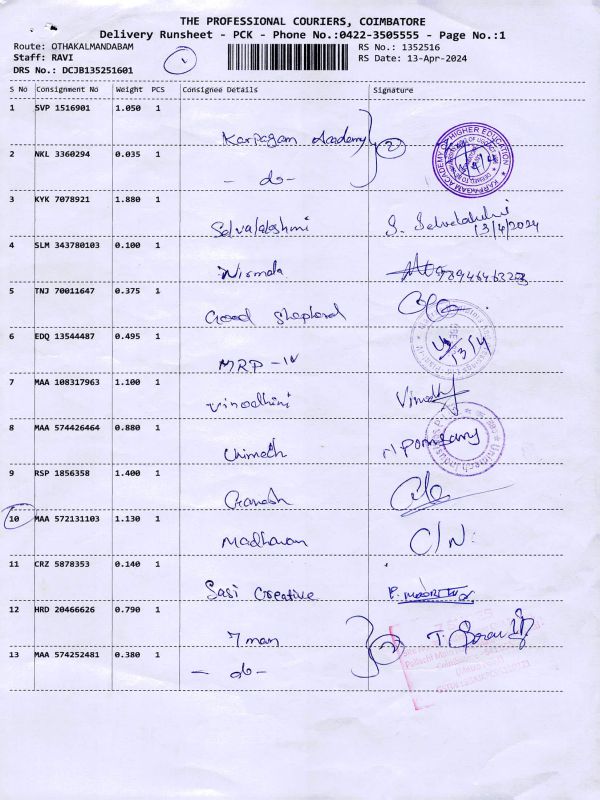 THE PROFESSIONAL COURIERS, COIMBATORE
Delivery Runsheet - PCK - Phone No.:0422-3505555 - Page No.:1
Route: OTHAKALMANDABAM
RS No.: 1352516
Staff: RAVI
1
RS Date: 13-Apr-2024
DRS No.: DCJB135251601
S No Consignment No Weight PCS Consignee Details Signature
1 SVP 1516901 1.050 1
Karpagam Academy 2
KARPAGAM ACADEMY OF HIGHER EDUCATION
2 NKL 3360294 0.035 1
- do -
3 KYK 7078921 1.880 1
Selvalakshmi S. Selvalakshmi
13/4/2024
4 SLM 343780103 0.100 1
Nirmala
5 TNJ 70011647 0.375 1
Good Shepherd
6 EDQ 13544487 0.495 1
13/4
MRP - IV
7 MAA 108317963 1.100 1
Vinodhini Vinodh
8 MAA 574426464 0.880 1
Unimech
9 RSP 1856358 1.400 1
Ganesh
10 MAA 572131103 1.130 1
Madhavan C/N:
11 CRZ 5878353 0.140 1
Sasi Creative
12 HRD 20466626 0.790 1
7 man 2
13 MAA 574252481 0.380 1
- do -